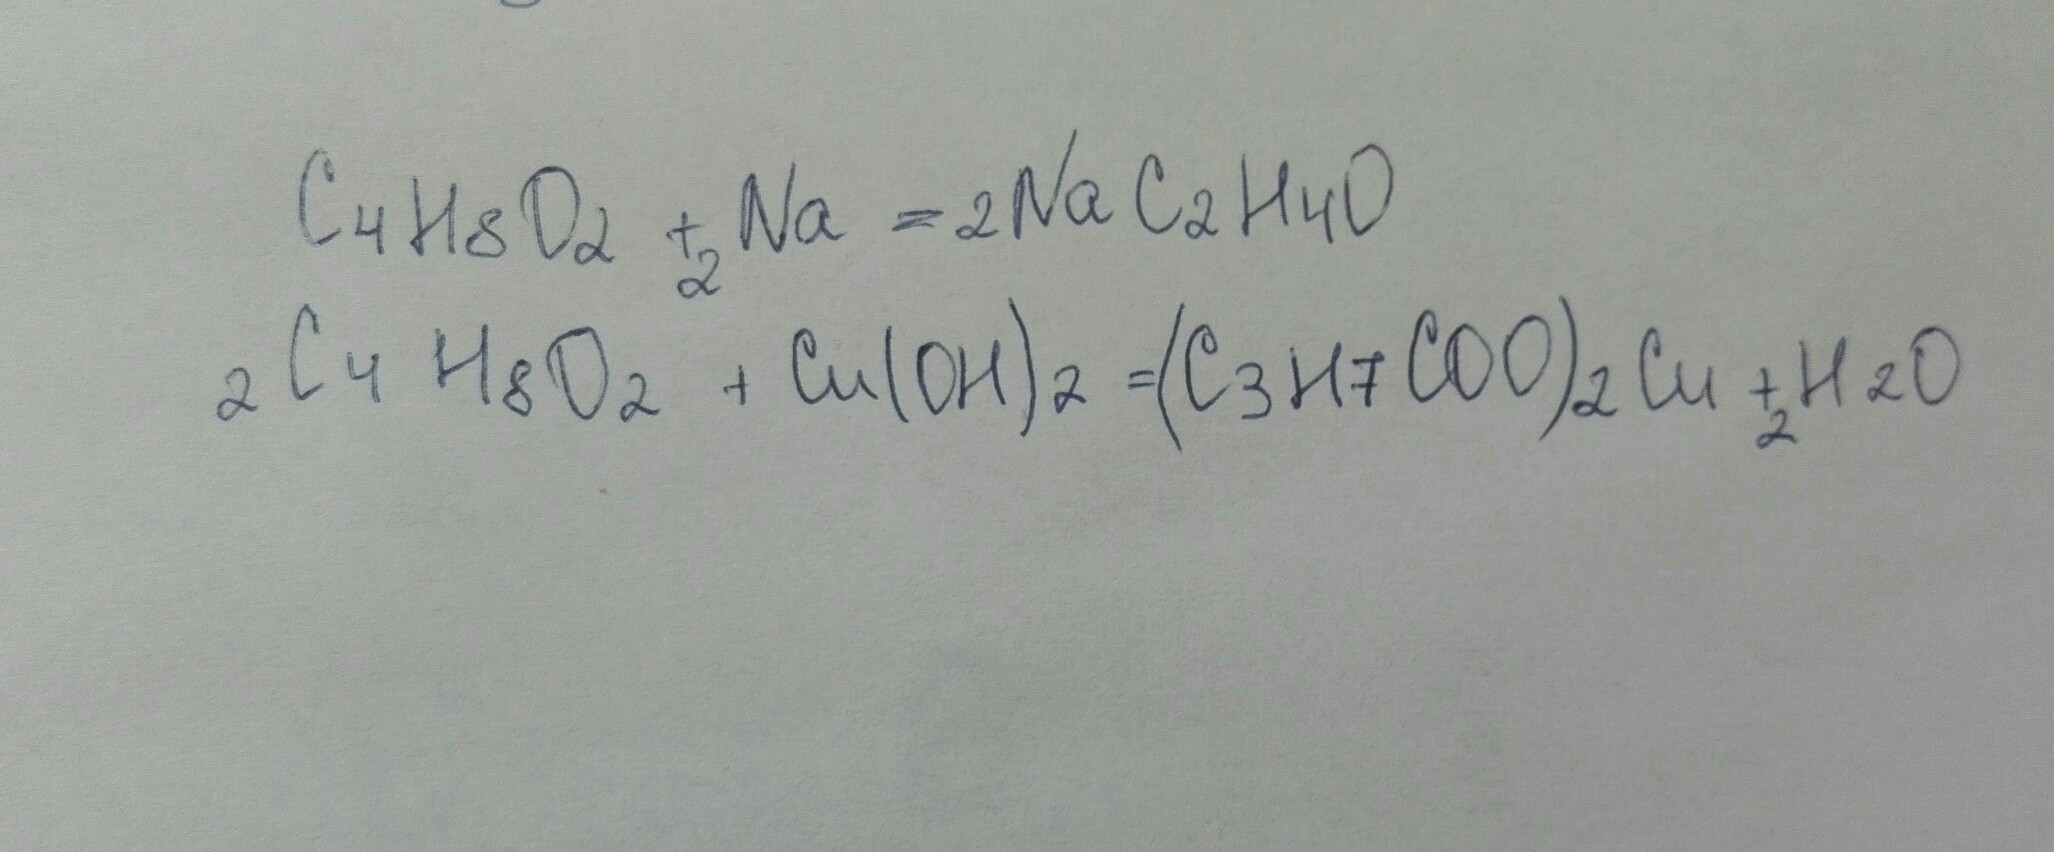 C4H8O2 +2Na = 2NaC2H4O
2C4H8O2 + Cu(OH)2 = (C3H7COO)2Cu + 2H2O